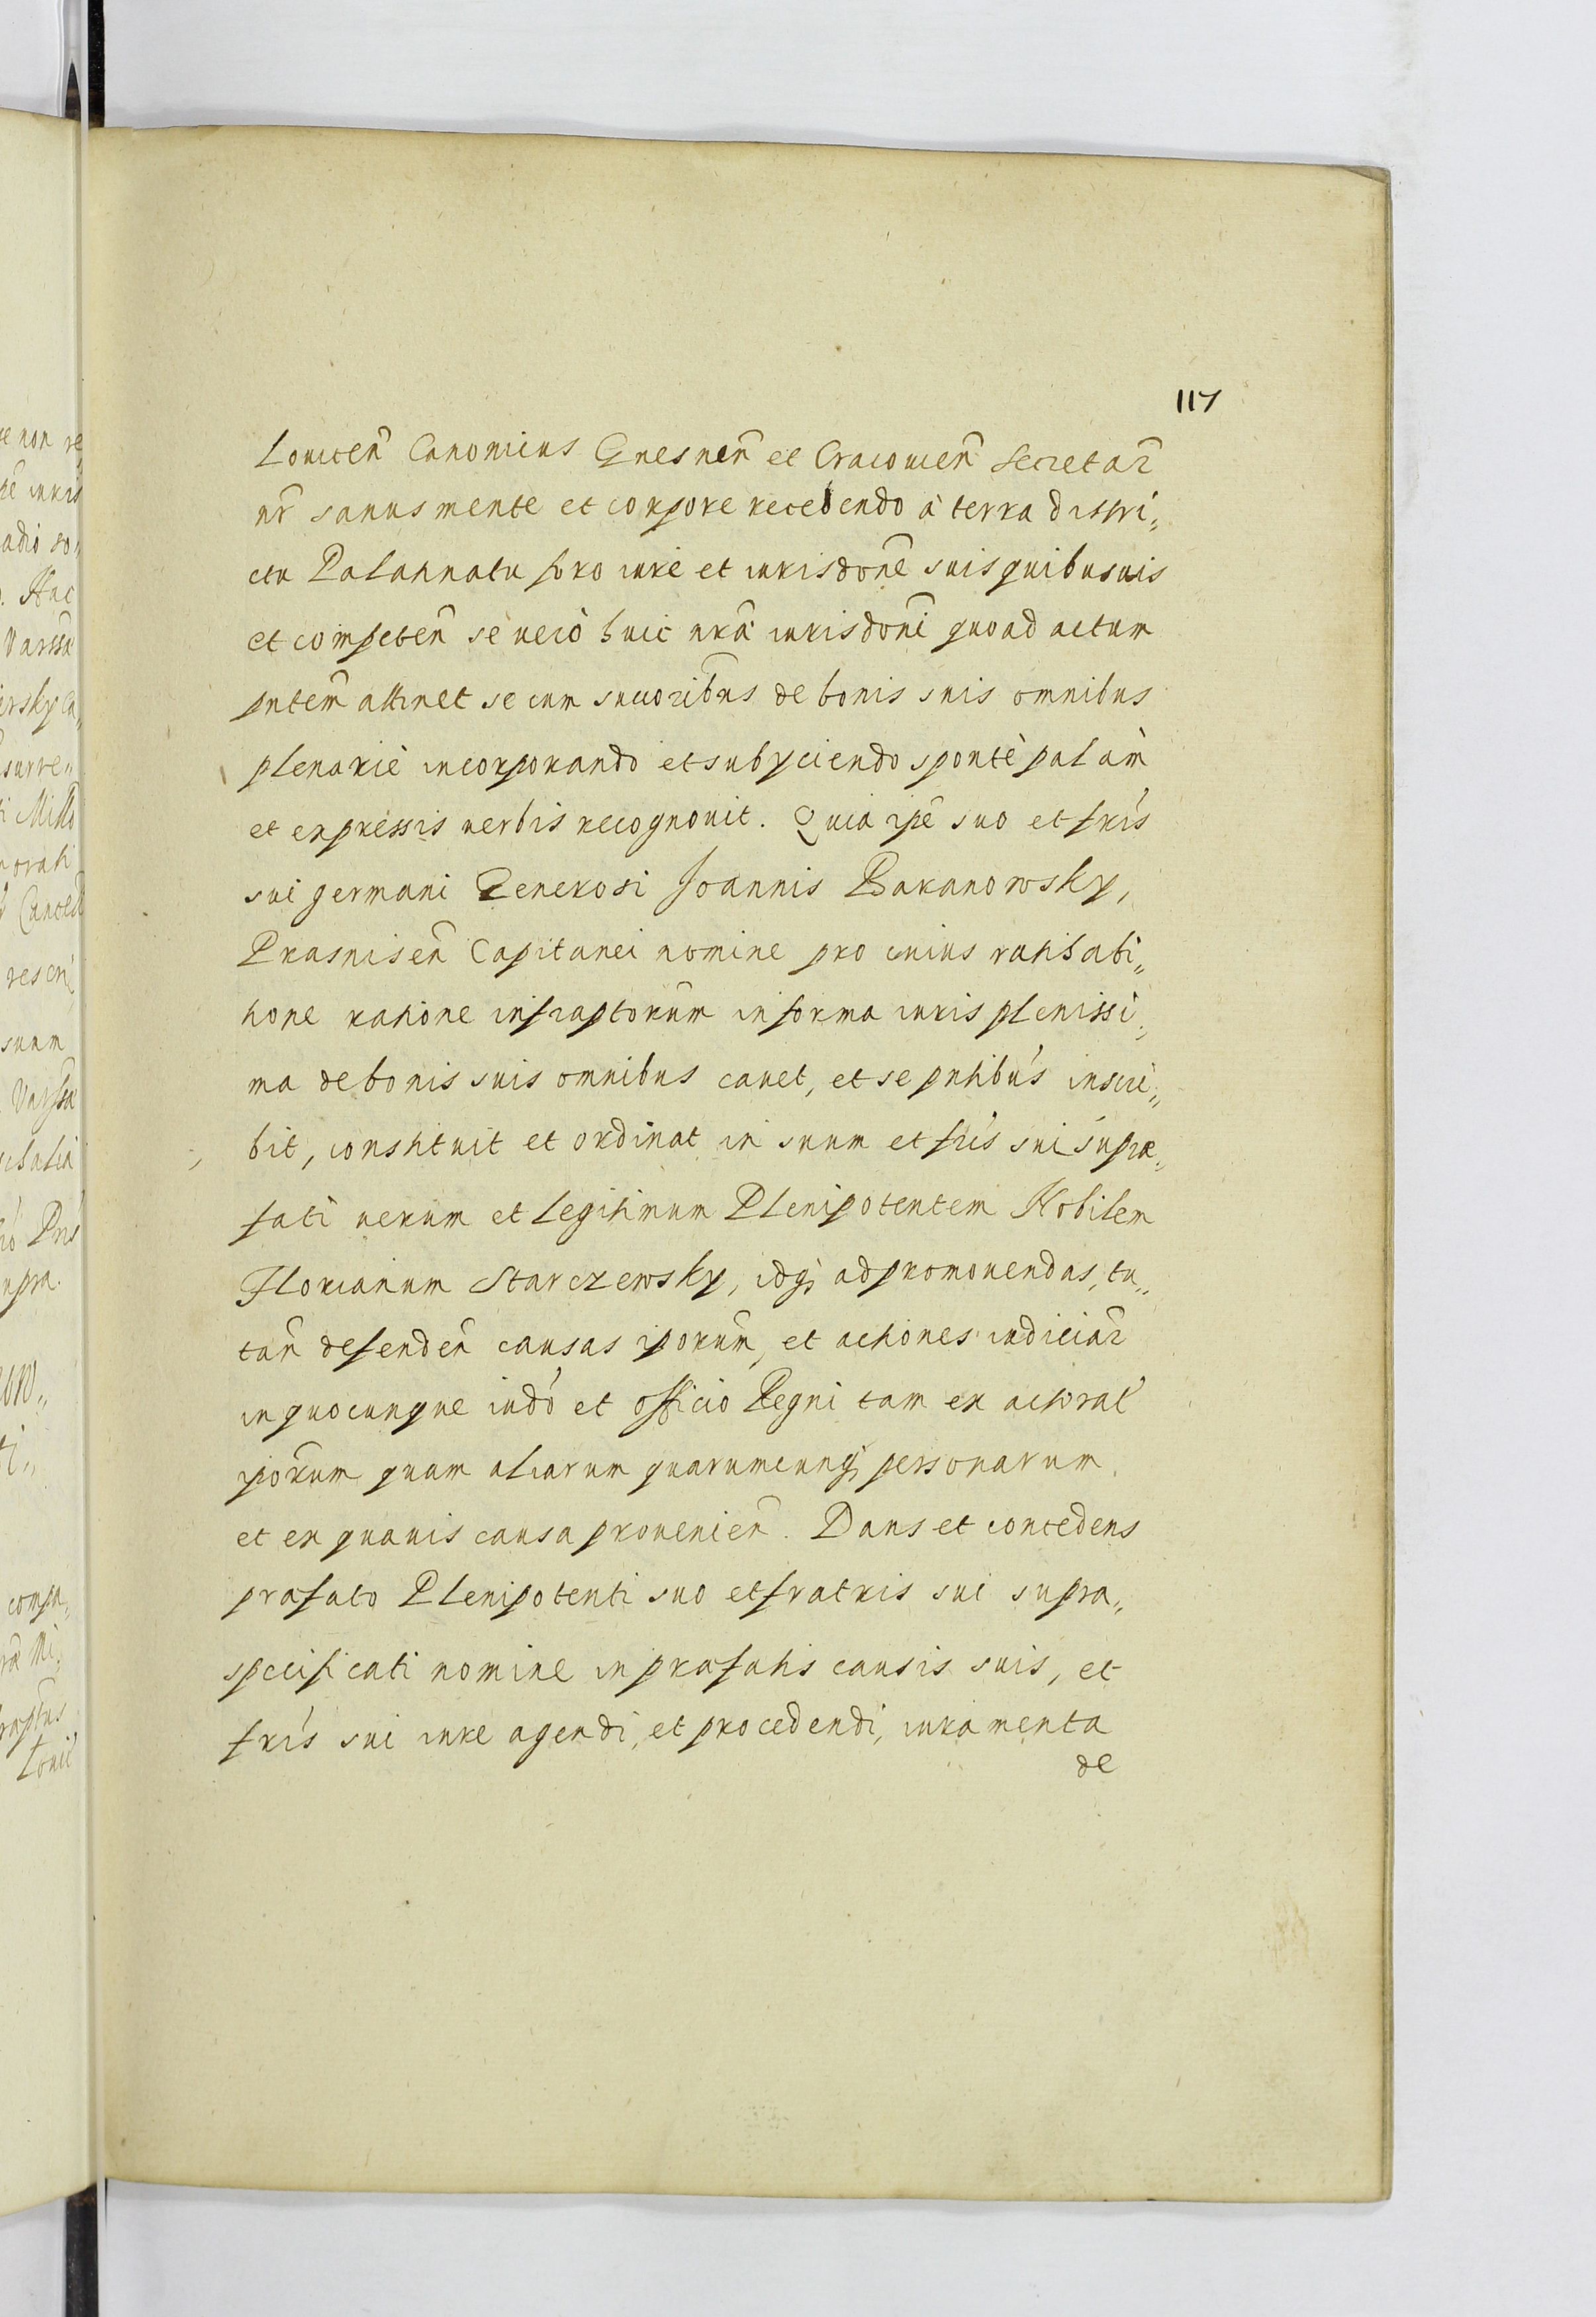 117
Louicen̄ Canonicus Gnesnen̄ et Cracouien̄ Secretar̄
nr̄ sanus mente et corpore recedendo à terra distri„
ctu Palatinatu foro iure et iurisdon̄e suis quibusuis
et competen̄ se uerò huic nrã iurisdon̄i quoad actum
pn̄tem attinet se cum succorib̄us de bonis suis omnibus
plenariè incorporando et subyciendo spontè palàm
et expressis uerbis recognouit. Quia ipē suo et fris
sui germani Generosi Joannis Baranowsky,
Prasnisen̄ Capitanei nomine pro cuius ratihabi„
tione ratione infraptorum̄ in forma iuris plenissi„
ma de bonis suis omnibus cauet, et se pntibus inscri„
bit, constituit et ordinat in suum et fris sui supra„
fati uerum et legitimum Plenipotentem Nobilem
Florianum Starczewsky, idq; ad promouendas, tu„
tan̄ defenden̄ causas iporum̄, et actiones iudiciar̄
in quocunque iudò et officio Regni tam ex actoral
ipōrum quam aliarum quarumcunq; personarum
et ex quauis causa prouenien̄. Dans et concedens
prafato Plenipotenti suo et fratris sui supra„
specificati nomine in prafatis causis suis, et
fris sui iure agendi, et procedendi, iuramenta
de